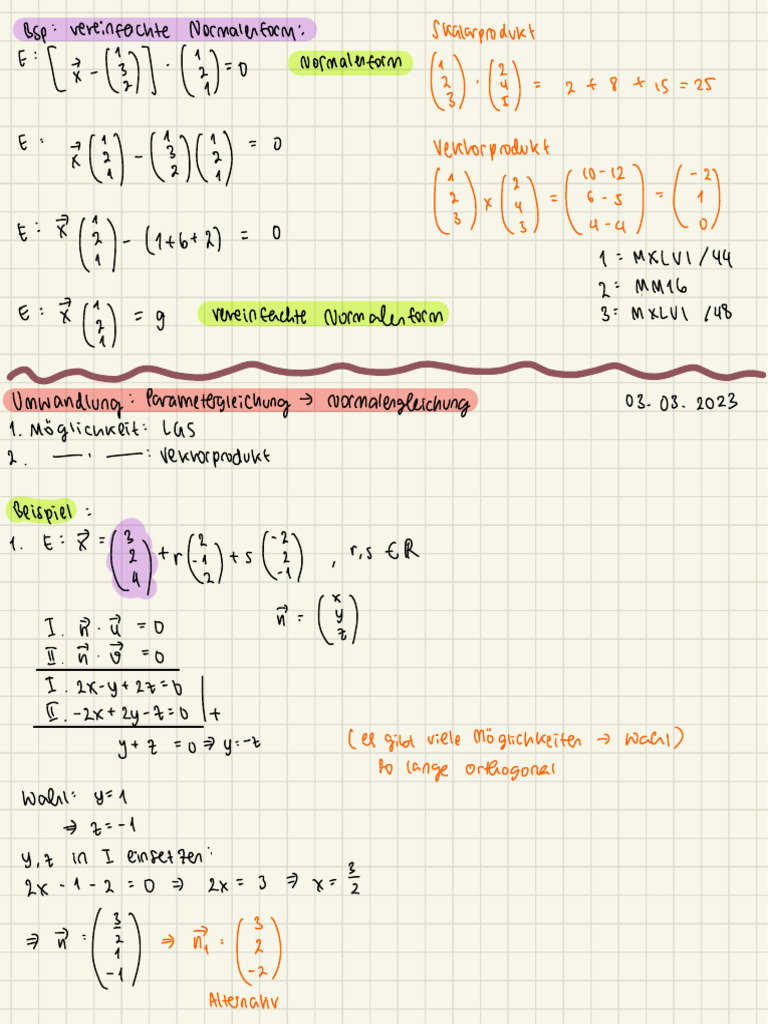 Bsp: vereinfachte Normalenform:
E: [x⃗ - (1 3 2)] · (1 2 1) = 0
Normalenform
E: x⃗ (1 2 1) - (1 3 2) (1 2 1) = 0
E: x⃗ (1 2 1) - (1+6+2) = 0
E: x⃗ (1 2 1) = 9
vereinfachte Normalenform
Skalarprodukt
(1 2 3) · (2 4 5) = 2 + 8 + 15 = 25
Vektorprodukt
(1 2 3) x (2 4 3) = (10-12 6-5 4-4) = (-2 1 0)
1 = MXLVI/44
2 = MM16
3 = MXLVI /48
Umwandlung: Parametergleichung → Normalengleichung
03.03.2023
1. Möglichkeit: LGS
2. —·—: Vektorprodukt
Beispiel:
1. E: x⃗ = (3 2 4) + r (2 -1 2) + s (-2 2 -1) , r,s ∈ R
n⃗ = (x y z)
I. n⃗ · u⃗ = 0
II. n⃗ · v⃗ = 0
I. 2x-y+2z=0
II. -2x+2y-z=0 | +
y+z = 0 ⇒ y=-z
(es gibt viele Möglichkeiten → Wahl)
so lange orthogonal
Wahl: y=1
⇒ z=-1
y,z in I einsetzen:
2x - 1 - 2 = 0 ⇒ 2x = 3 ⇒ x = 3/2
⇒ n⃗ = (3/2 1 -1) ⇒ n⃗₁ = (3 2 -2)
Alternativ